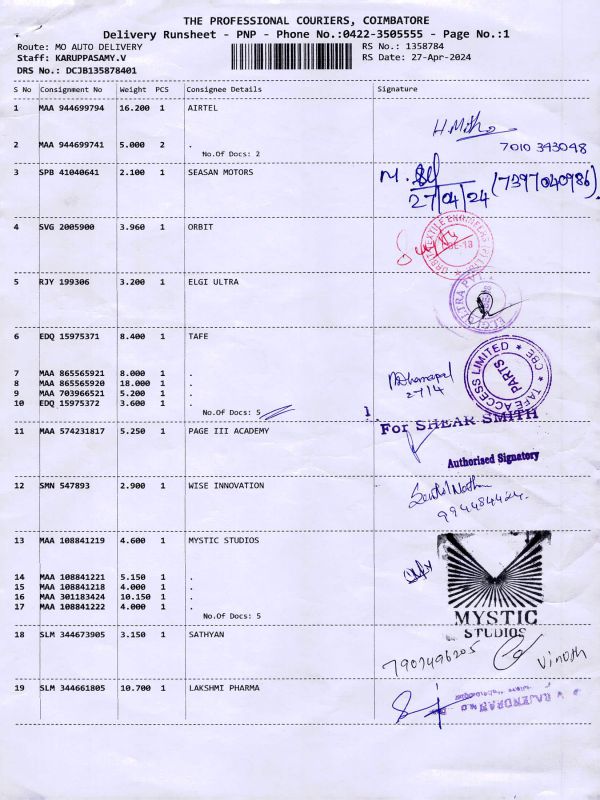 THE PROFESSIONAL COURIERS, COIMBATORE
Delivery Runsheet - PNP - Phone No.:0422-3505555 - Page No.:1
Route: MO AUTO DELIVERY RS No.: 1358784
Staff: KARUPPASAMY.V RS Date: 27-Apr-2024
DRS No.: DCJB135878401
S No Consignment No Weight PCS Consignee Details Signature
1 MAA 944699794 16.200 1 AIRTEL
H.Mitho
2 MAA 944699741 5.000 2 .
7010 393048
No.Of Docs: 2
3 SPB 41040641 2.100 1 SEASAN MOTORS
27/04/24 (7397040986).
4 SVG 2005900 3.960 1 ORBIT
5 RJY 199306 3.200 1 ELGI ULTRA
ELGI ULTRA
6 EDQ 15975371 8.400 1 TAFE
TAFE ACCESS LIMITED * CBE *
PARTS
7 MAA 865565921 8.000 1 .
8 MAA 865565920 18.000 1 .
27/4
9 MAA 703966521 5.200 1 .
10 EDQ 15975372 3.600 1 .
No.Of Docs: 5
1
For SHEAR SMITH
11 MAA 574231817 5.250 1 PAGE III ACADEMY
Authorised Signatory
12 SMN 547893 2.900 1 WISE INNOVATION
Senthil Nathan
994484424.
13 MAA 108841219 4.600 1 MYSTIC STUDIOS
14 MAA 108841221 5.150 1 .
15 MAA 108841218 4.000 1 .
16 MAA 301183424 10.150 1 .
17 MAA 108841222 4.000 1 .
No.Of Docs: 5
MYSTIC
STUDIOS
18 SLM 344673905 3.150 1 SATHYAN
7907496205 Vinoth
19 SLM 344661805 10.700 1 LAKSHMI PHARMA
RAJENDRAN